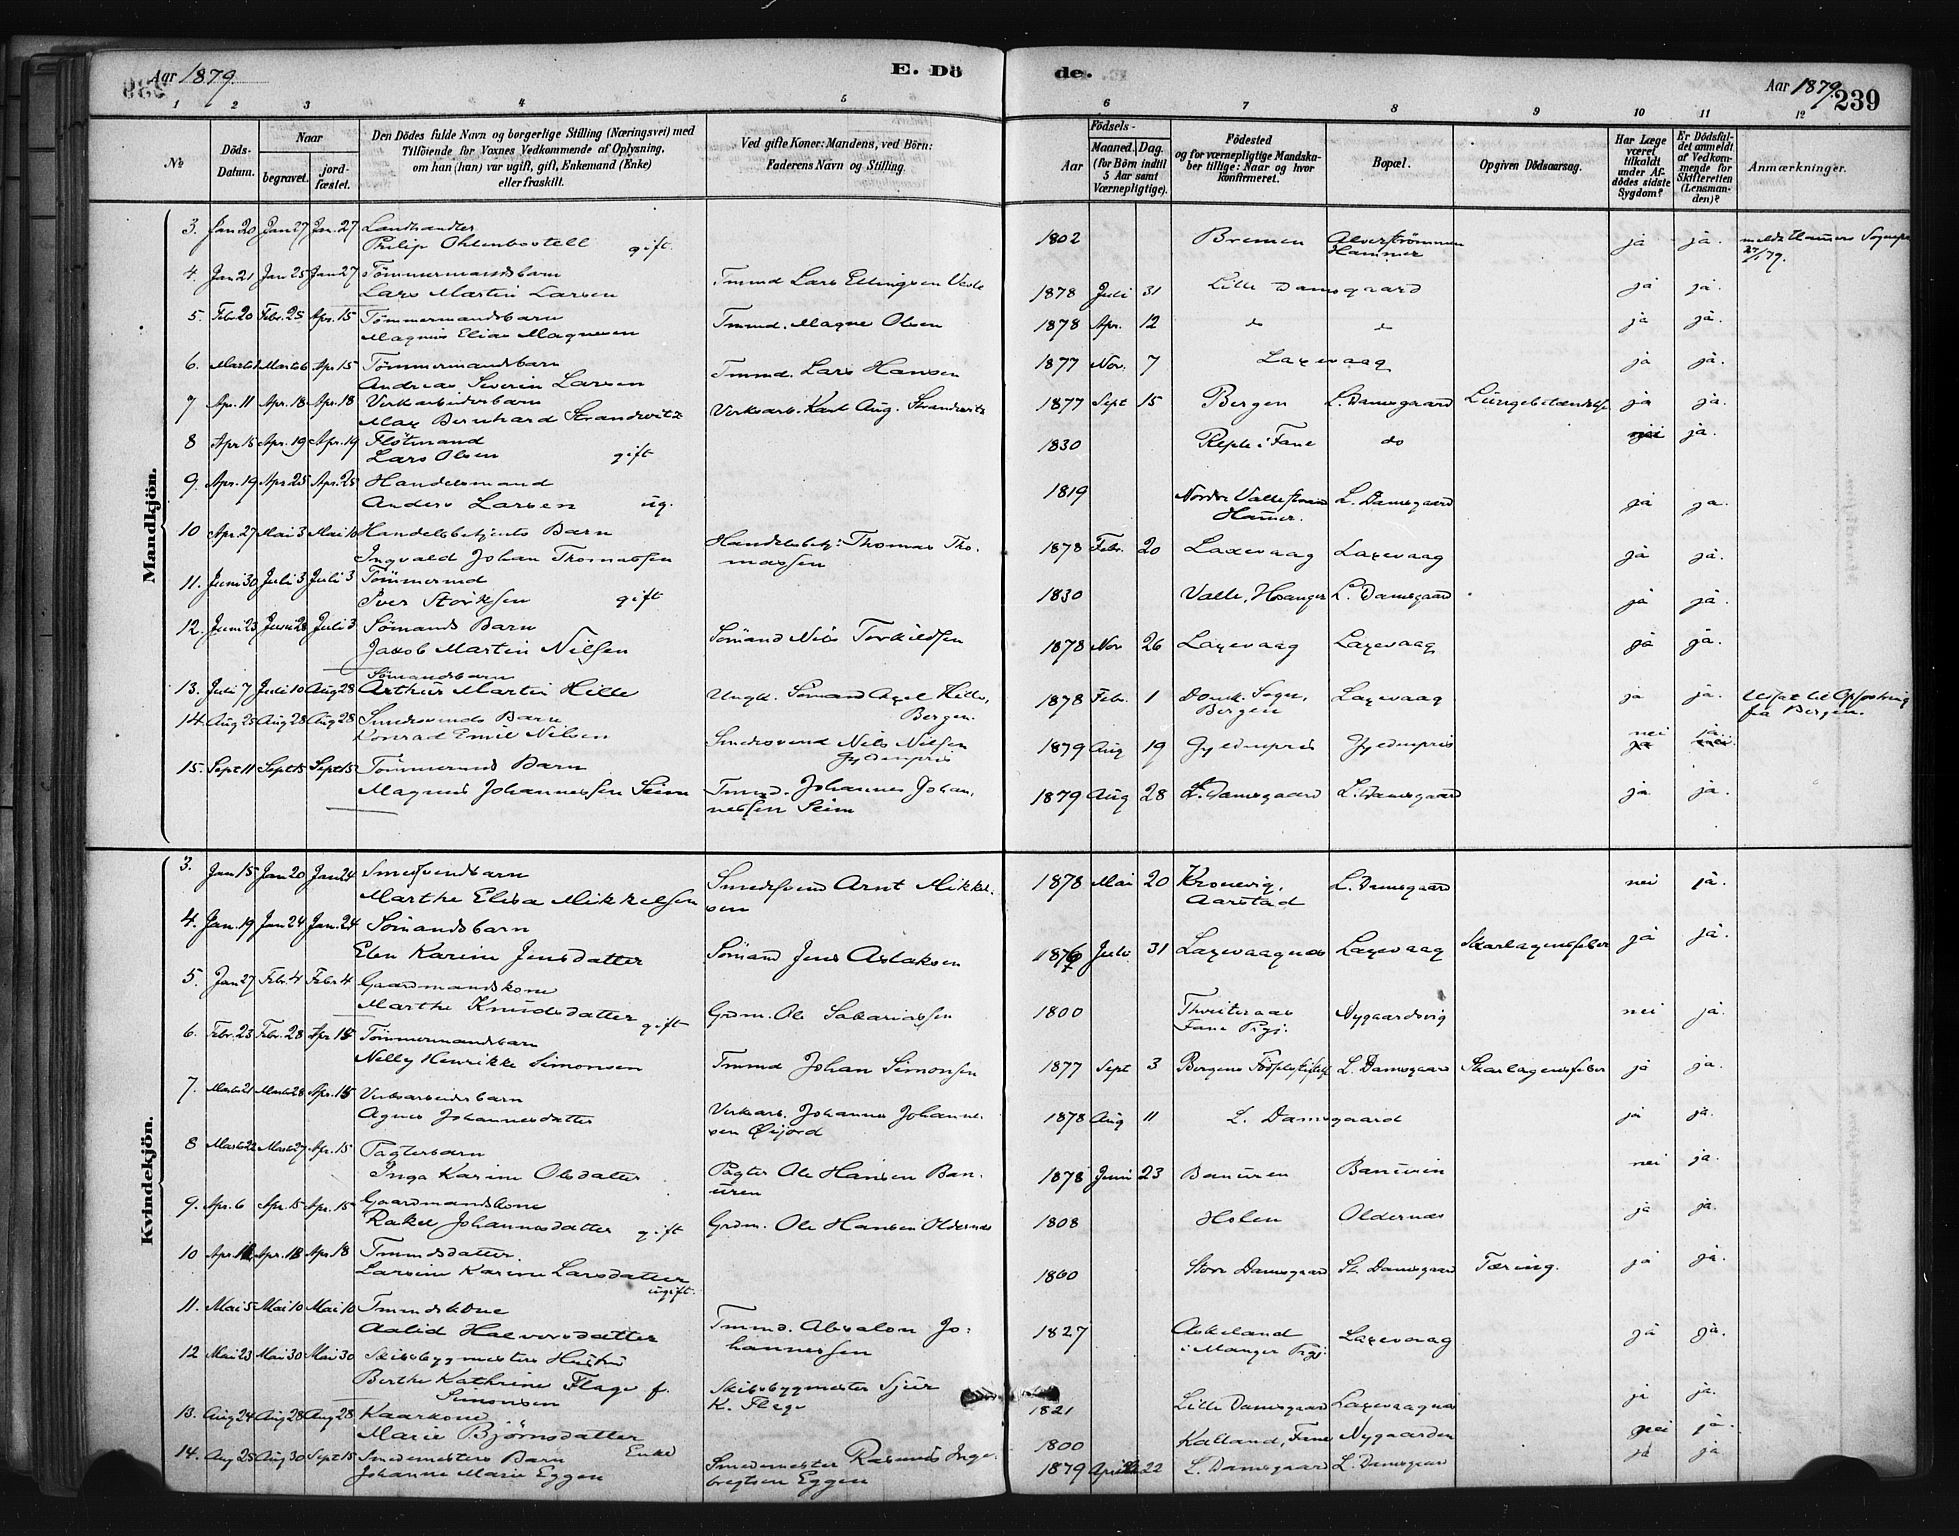 Aar 1879. E. Dö de. Aar 1879. 239
1 2 3 4 5 6 7 8 9 10 11 12
No
Döds-Datum.
Naar
begravet.
jord-fæstet.
Den Dödes fulde Navn og borgerlige Stilling (Næringsvei) med
Tilföiende for Voxnes Vedkommende af Oplysning,
om han (hun) var ugift, gift, Enkemand (Enke)
eller fraskilt.
Ved gifte Koner: Mandens, ved Börn:
Faderens Navn og Stilling.
Födsels-
Aar
Maaned. Dag.
(for Börn indtil
5 Aar samt
Værnepligtige).
Födested
og for værnepligtige Mandska-
ber tillige: Naar og hvor
konfirmeret.
Bopæl.
Opgiven Dödsaarsag.
Har Læge
været
tilkaldt
under Af-
dödes sidste
Sygdom?
Er Dödsfal-
det anmeldt
af Vedkom-
mende for
Skifteretten
(Lensman-
den)?
Anmærkninger.
Mandkjön.
3. Jan 20 Jan 27 Jan. 27 Landhandler
Philip Ohlenbostell gift. 1802 Bremen Alverströmmen Hammer ja ja. 27/1 79.
4. Jan 21 Jan 25 Jan 27 Tömmermandsbarn
Lars Martin Larsen Tmmd Lars Ellingsen 1878 Juli 31 Lille Damsgaard ja ja.
5. Febr. 20 Febr. 25 Apr. 15 Tömmermandsbarn
Magnus Elias Magnesen Tmmd. Magne Olsen 1878 Apr. 12 do do ja ja.
6. Marts 1 Marts 6 Apr 15 Tömmermandsbarn
Andreas Severin Larsen Tmmd. Lars Hansen 1877 Nov. 7 Laxevaag ja ja.
7 Apr. 11 Apr. 18 Apr. 18 Verkarbeiderbarn
Max Bernhard Strandwitz Verksarb. Karl Aug. Strandwitz 1877 Sept 15 Bergen L. Damsgaard Lungebetændelse ja ja.
8 Apr 15 Apr. 19 Apr. 19 Flötmand
Lars Olsen gift 1830 i Fane do nei ja.
9. Apr. 19 Apr 25 Apr. 25 Handelsmand
Anders Larsen ug. 1819 Hamer. L. Damsgaard ja ja.
10 Apr. 27 Mai 3 Mai 10 Handelsbetjents Barn
Ingvald Johan Thomassen Handelsbetj: Thomas Tho-
massen 1878 Febr. 20 Laxevaag Laxevaag ja ja.
11. Juni 30 Juli 3 Juli 3 Tömmermd
Iver Störksen gift 1830 Valle, Hosanger L. Damsgaard ja ja.
12. Juni 23 Juni 28 Juli 3 Sömands Barn
Jakob Martin Nilsen Sömand Nils Torkildsen 1878 Nov 26 Laxevaag Laxevaag ja ja.
Sömandsbarn
13. Juli 7 Juli 10 Aug 28 Arthur Martin Hille Ungk. Sömand Axel Hille,
Bergen. 1878 Febr. 1 Domk. Sogn, Bergen Laxevaag ja ja. til Opfostring
fra Bergen.
14. Aug 25 Aug 28 Aug 28 Smedsvends Barn
Konrad Emil Nilsen Smedsvend Nils Nilsen
Gyldenpris 1879 Aug 19 Gyldenpris Gyldenpris nei ja
15. Sept 11 Sept 15 Sept 15 Tömmermds Barn
Magnus Johannessen Seim Tmmd. Johannes Johan-
nessen Seim 1879 Aug 28 L. Damsgaard L. Damsgaard ja ja.
Kvindekjön.
3. Jan 15 Jan 20 Jan 24 Smedsvendbarn
Marthe Elisa Mikkelsen Smedesvend Arnt Mikkel-
sen 1878 Mai 20 Kronevig, Aarstad L. Damsgaard nei ja.
4. Jan. 19 Jan 24 Jan. 24 Sömandsbarn
Elen Karine Jensdatter Sömand Jens Aslaksen 1877 Juli 31 Laxevaagnes Laxevaag Skarlagensfeber ja ja.
5. Jan 27 Febr. 4 Febr 4 Gaardmandskone
Marthe Knudsdatter gift Grdm. Ole Sakariassen 1800 Fane Prgj. Nygaardsvig nei ja.
6. Febr. 23 Febr. 28 Apr 15 Tömmermandsbarn
Nelly Henrikke Simonsen Tmmd Johan Simonsen 1877 Sept 3 Bergens L. Damsgaard Skarlagensfeber ja ja.
7. Marts 21 Marts 28 Apr. 15 Verksarbeiderbarn
Agnes Johannesdatter Verksarb. Johannes Johanne-
sen 1878 Aug 11 L. Damsgaard ja ja.
8 Marts 22 Marts 27 Apr. 15 Pagterbarn
Inga Karine Olsdatter Pagter Ole Hansen Ban-
uren 1878 Juni 23 Banuren Banuren nei ja.
9. Apr. 6 Apr. 15 Apr. 15 Gaardmandskone
Rakel Johannesdatter gift Grdm. Ole Hansen Oldernes 1808 Holen Oldernes ja ja.
10 Apr. 12 Apr. 18 Apr 18 Tmmdsdatter
Larsine Karine Larsdatter
ugift. 1860 Store Damsgaard St. Damsgaard Tæring. ja ja.
11. Mai 5 Mai 10 Mai 10 Tmmdskone
Aalid Halvorsdatter Tmmd. Absalon Jo-
hannessen 1827 Askeland
i Manger Prgj. Laxevaag ja ja.
12 Mai 23 Mai 30 Mai 30 Skibsbygmesters Hustru
Berthe Kathrine Flage f.
Simonsen Skibsbygmester Sjur
K. Flage 1821 Lille Damsgaard Laxevaagnes ja ja.
13. Aug 24 Aug 28 Aug 28 Kaarkone
Marie Bjørnsdatter Enke 1800 Kalland, Fane Nygaarden nei ja.
14. Aug 25 Aug 30 Sept 15 Smedemesters Barn
Johanne Marie Eggen Smedemester Rasmus Inge-
bregtsen Eggen 1879 April 22 L. Damsgaard L. Damsgaard ja ja